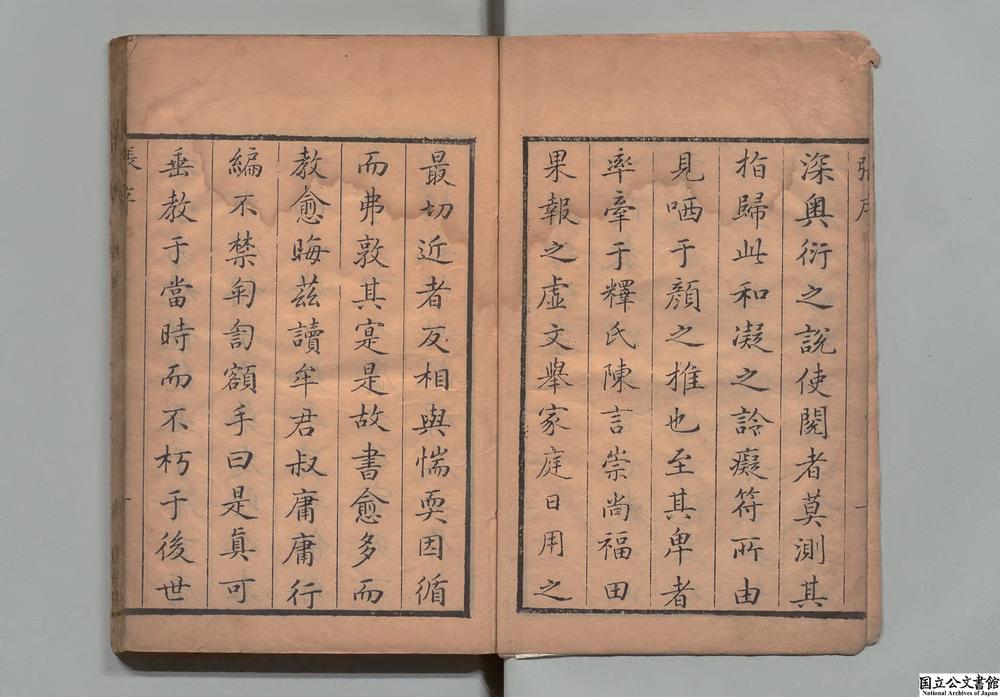 深奧衍之說使閱者莫測其
指歸此和凝之詅癡符所由
見哂于顏之推也至其卑者
率牽于釋氏陳言崇尚福田
果報之虛文舉家庭日用之
最切近者反相與惴耎因循
而弗敦其寔是故書愈多而
教愈晦茲讀牟君叔庸庸行
編不禁匍匐額手曰是眞可
垂教于當時而不朽于後世
張序
國立公文書館
National Archives of Japan